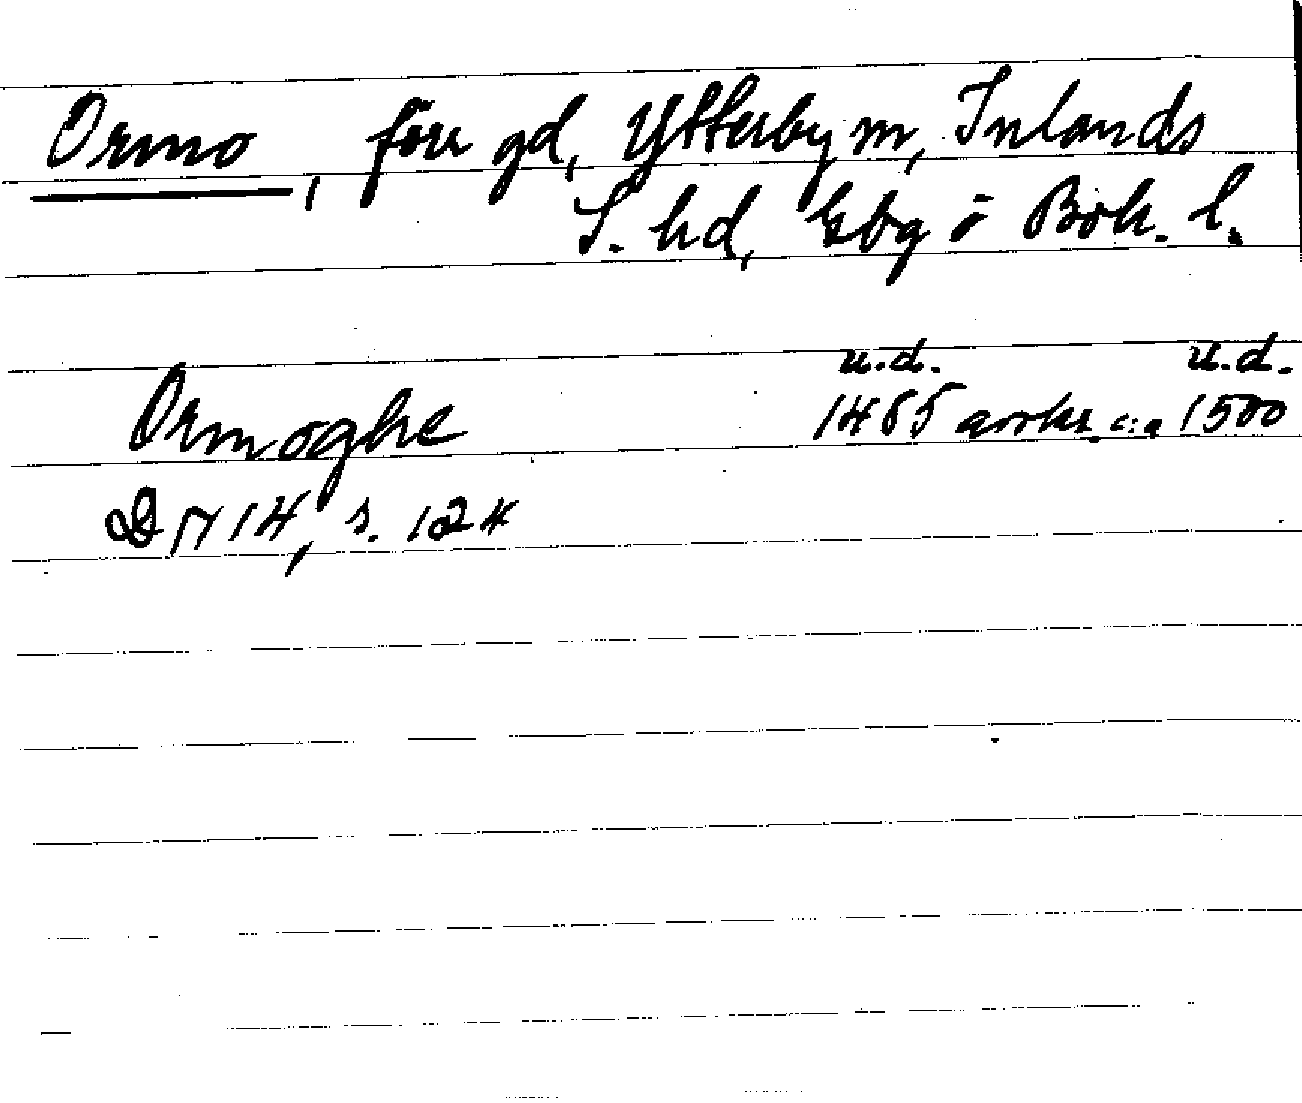 Ormo, förr gd, Ytterby sn, Inlands
S. hd, Gbg o Boh. l.
u.d. u.d.
Ormoghe 1485 avskr. c:a 1500
DN 14, s. 124